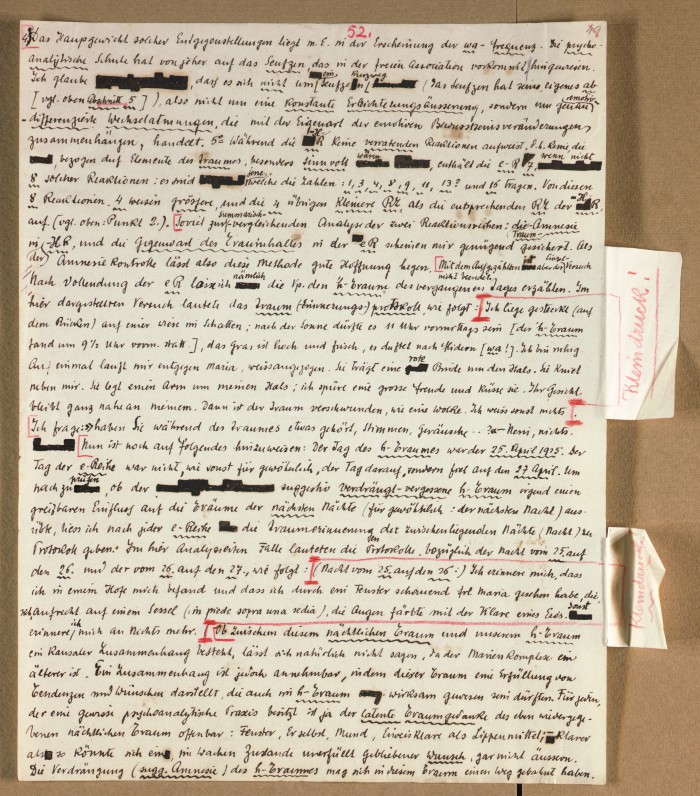 52.
Das Hauptgewicht solcher Entgegenstellungen liegt m. E. in der Erscheinung der wa-frequenz. Die psycho-
analytische Schule hat von jeher auf das Seufzen, das in der freien Association vorkommt, hingewiesen.
Ich glaube, dass es sich nicht um (das Seufzen hat seine eigenes
[vgl. oben Abschnitt 5]), also nicht um eine konstante Erleichterungsäusserung, sondern um
-differenzierte Wechselatmungen, die mit der Eigenart der emotiven Bewusstseinsveränderungen
zusammenhängen, handelt. 5° Während die H-R keine verratenden Reaktionen aufweist, d.h. keine, die
bezogen auf Elemente des Traumes, besonders sinnvoll wären, enthält die e-R, wenn nicht
8 solcher Reaktionen: es sind jene, welche die Zahlen: 1, 3, 4, 8, 9, 11, 13 und 16 tragen. Von diesen
8 Reaktionen, 4 weisen grössere, und die 4 übrigen kleinere RZ als die entsprechenden RZ der H-R
auf (vgl. oben: Punkt 2.). Soviel zur summarisch-vergleichenden Analyse der zwei Reaktionsreihen: die Amnesie
in H-R, und die Gegenwart des Trauminhalles in der e R scheinen mir genügend gesichert. Als
der Amnesie Kontrolle lässt also diese Methode gute Hoffnung hegen. Mit dem Aufzählen ist aber der Versuch
nicht beendet.
Nach Vollendung der e R liess ich nämlich die Vp. den h-Traum des vergangenen Tages erzählen. Im
hier dargestellten Versuch lautete das Traum (Erinnerungs-)protokoll wie folgt: Ich liege gestreckt (auf
dem Rücken) auf einer Wiese im Schatten; nach der Sonne dürfte es 11 Uhr vormittags sein [der h-Traum
fand um 9½ Uhr vorm. statt.], das Gras ist hoch und frisch, es duftet nach Kidern [wa!]. Ich bin ruhig.
Auf einmal läuft mir entgegen Maria, weissangezogen. Sie trägt eine rote Binde um den Hals. Sie kniet
neben mir. Sie legt einen Arm um meinen Hals; ich spüre eine grosse Freude und küsse sie. Ihr Gesicht
bleibt ganz nahe an meinem. Dann ist der Traum verschwunden, wie eine Wolke. Ich weiss sonst nichts.
Ich frage: haben Sie während des Traumes etwas gehört, Stimmen, Geräusche...? - Nein, nichts.
Nun ist noch auf folgendes hinzuweisen: Der Tag des h-Traumes war der 25. April 1925. Der
Tag der e-Reihe war nicht, wie sonst für gewöhnlich, der Tag darauf, sondern fiel auf den 27 April. Um
nachzuprüfen ob der suggestiv verdrängt-vergessene h-Traum irgend einen
greifbaren Einfluss auf die Träume der nächsten Nächte (für gewöhnlich: der nächsten Nacht) aus-
übte, liess ich nach jeder e-Reihe die Traumerinnerung der zwischenliegenden Nächte (Nacht) zu
Protokoll geben. Im hier analysierten Falle lauteten die Protokolle, bezüglich der Nacht vom 25. auf
den 26. und der vom 26. auf den 27., wie folgt: (Nacht vom 25. auf den 26:) Ich erinnere mich, dass
ich in einem Hofe mich befand und dass ich durch ein Fenster schauend frl Maria gesehen habe, die
aufrecht auf einem Sessel (in piede sopra una sedia), die Augen färbte mit der Klare eines Eies. Sonst
erinnere ich mich an Nichts mehr. Ob zwischen diesem nächtlichen Traum und unserem h-Traum
ein kausaler Zusammenhang besteht, lässt sich natürlich nicht sagen, da der Marienkomplex ein
älterer ist. Ein Zusammenhang ist jedoch annehmbar, indem dieser Traum eine Erfüllung von
Tendenzen und Wünschen darstellt, die auch im h-Traum wirksam gewesen sein dürften. Für jeden,
der eine gewisse psychoanalytische Praxis besitzt ist ja der latente Traumgedanke des eben wiedergege-
benen nächtlichen Traum offenbar: Fenster, Er selbst, Mund, Eiweisklare als Lippenmittel; Klarer
also könnte sich ein im wachen Zustande unerfüllt gebliebener Wunsch, gar nicht äussern.
Die Verdrängung (sugg. Amnesie) des h-Traumes mag sich in diesem Traum einen Weg gebahnt haben.
Kleindruck!
Kleindruck